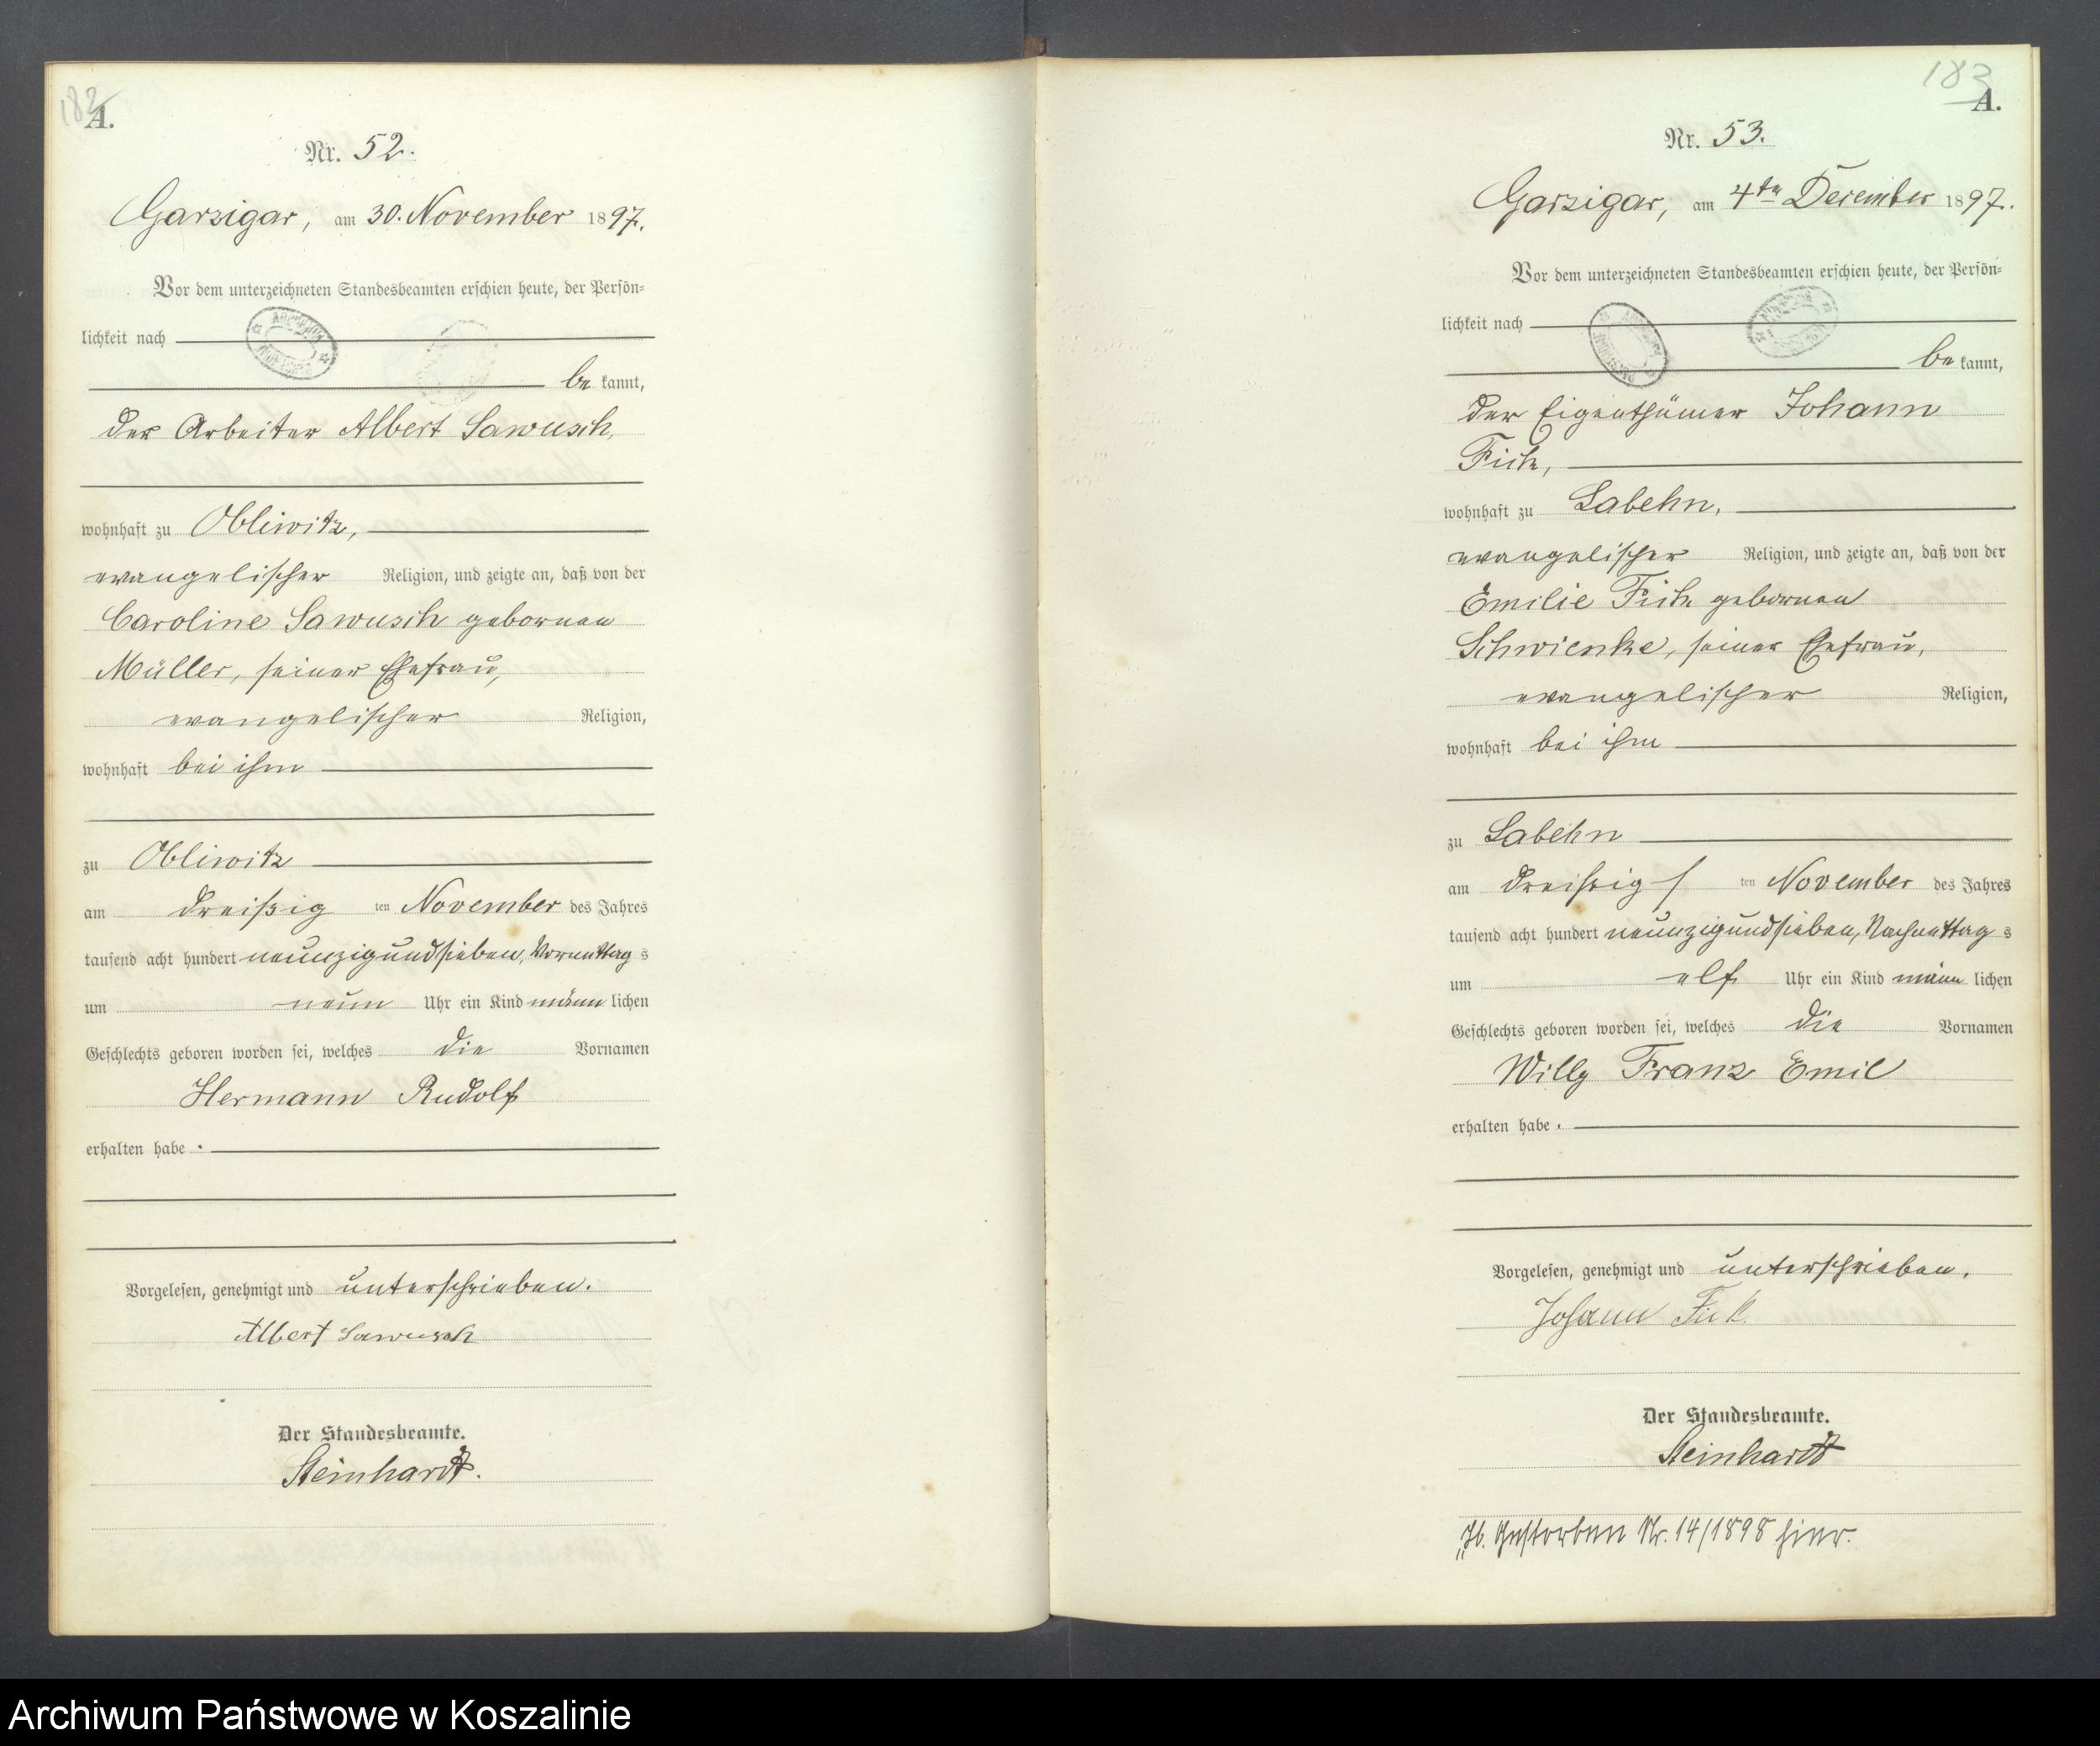 182
A.
Nr. 52.
Garzigar, am 30. November 1897.
Vor dem unterzeichneten Standesbeamten erschien heute, der Persön-
lichkeit nach
be kannt,
der Arbeiter Albert Sawusch,
wohnhaft zu Obliwitz,
evangelischer Religion, und zeigte an, daß von der
Caroline Sawusch gebornen
Müller, seiner Ehefrau,
evangelischer Religion,
wohnhaft bei ihm
zu Obliwitz
am dreißig ten November des Jahres
tausend acht hundert neunzigundsieben, Vormittag s
um neun Uhr ein Kind männ lichen
Geschlechts geboren worden sei, welches die Vornamen
Hermann Rudolf
erhalten habe.
Vorgelesen, genehmigt und unterschrieben.
Albert Sawusch
Der Standesbeamte.
Steinhardt.
183
A.
Nr. 53.
Garzigar, am 4ten December 1897.
Vor dem unterzeichneten Standesbeamten erschien heute, der Persön-
lichkeit nach
be kannt,
der Eigenthümer Johann
Fick,
wohnhaft zu Labehn,
evangelischer Religion, und zeigte an, daß von der
Emilie Fick gebornen
Schwienke, seiner Ehefrau,
evangelischer Religion,
wohnhaft bei ihm
zu Labehn
am dreißig ten November des Jahres
tausend acht hundert neunzigundsieben, Nachmittag s
um elf Uhr ein Kind männ lichen
Geschlechts geboren worden sei, welches die Vornamen
Willy Franz Emil
erhalten habe.
Vorgelesen, genehmigt und unterschrieben.
Johann Fick
Der Standesbeamte.
Steinhardt
Gestorben Nr. 14/1898 hier.
Archiwum Państwowe w Koszalinie